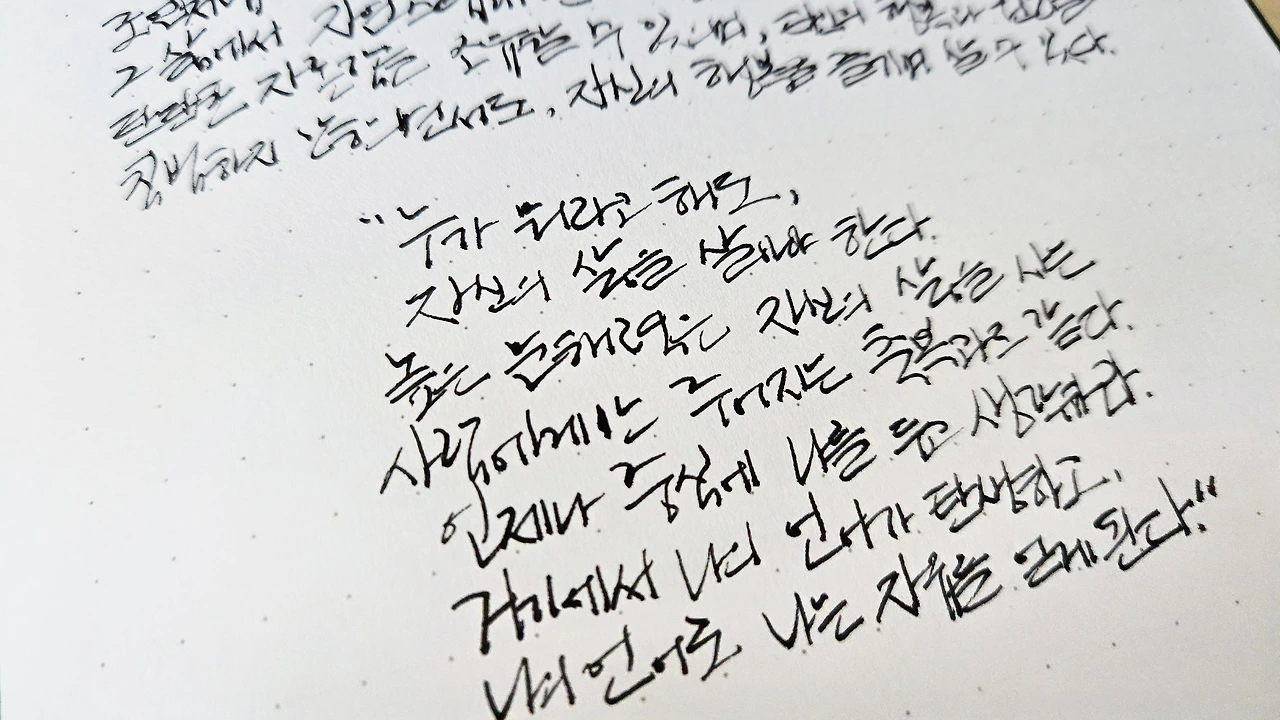 그 삶에서
단단한 자존감은 소유할 수 있으며, 타인의 행복과
침범하지 않으면서도, 자신의 행복을 즐기며 살 수 있다.
"누가 뭐라고 해도,
자신의 삶을 살아야 한다.
높은 문해력은 자신의 삶을 사는
사람에게만 주어지는 축복과도 같다.
언제나 중심에 나를 두고 생각하라.
거기에서 나의 언어가 탄생하고,
나의 언어로 나는 자유를 얻게 된다."